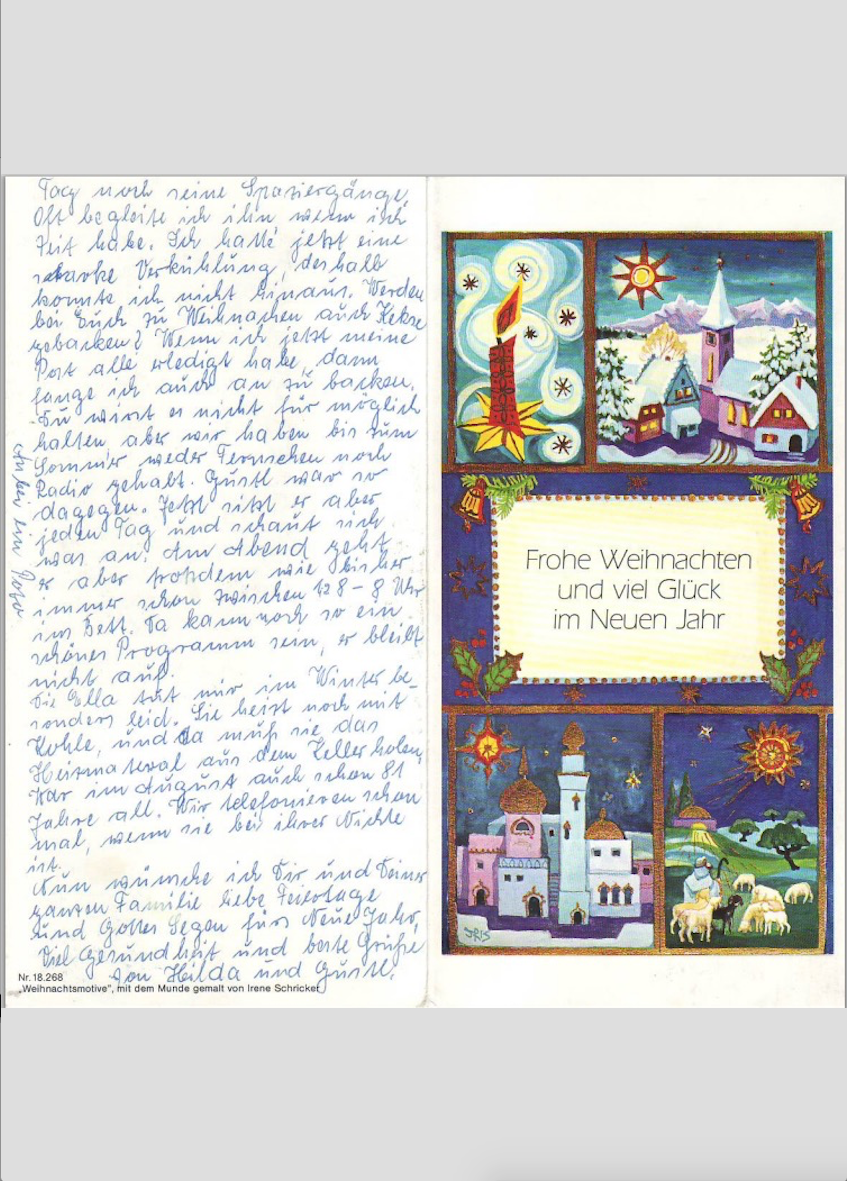 Tag noch seine Spaziergänge,
Oft begleite ich ihn wenn ich
Zeit habe. Ich hatte jetzt eine
starke Verkühlung, deshalb
konnte ich nicht hinaus. Werden
bei Euch zu Weihnachen auch Kekse
gebacken? Wenn ich jetzt meine
Post alle erledigt habe, dann
fange ich auch an zu backen.
Du wirst es nicht für möglich
halten aber wir haben bis zum
Sommer weder Fernsehen noch
Radio gehabt. Gustl war so
dagegen. Jetzt sitzt er aber
jeden Tag und schaut sich
was an. Am Abend geht
er aber trotzdem wie bisher
immer schon zwischen 1/2 8 – 8 Uhr
ins Bett. Da kann noch so ein
schönes Programm sein, er bleibt
nicht auf.
Die Ella tut mir im Winter be-
sonders leid. Sie heist noch mit
Kohle, und da muß sie das
Heismaterial aus dem Keller holen,
War im August auch schon 81
Jahre alt. Wir telefonieren schon
mal, wenn sie bei ihrer Nichte
ist.
Nun wünsche ich Dir und Deiner
ganzen Familie liebe Feiertage
und Gottes Segen fürs Neue Jahr,
Viel Gesundheit und beste Grüße
von Hilda und Gustl.
Anbei ein Foto
Nr. 18.268
„Weihnachtsmotive", mit dem Munde gemalt von Irene Schricker
Frohe Weihnachten
und viel Glück
im Neuen Jahr
IRIS